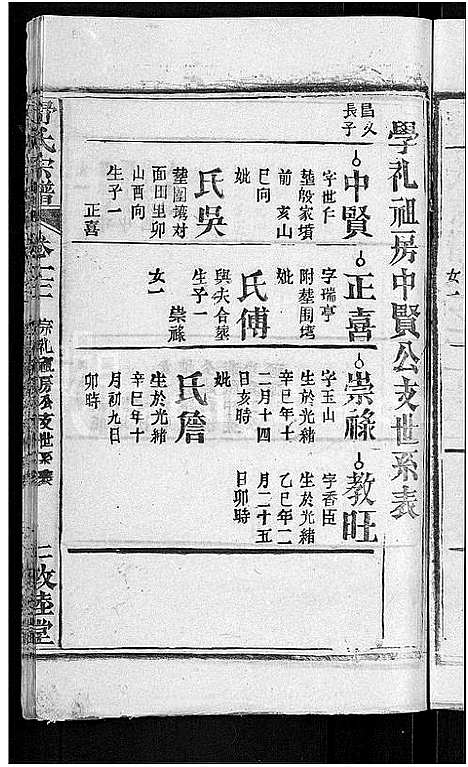 學礼祖房中賢公支世系表
昌文
長子
中賢
字世仕
塟殷家墳
前亥山
巳向
妣
氏吳
塟圍塆对
面田里卯
山酉向
生子一
正喜
正喜
字瑞亭
附塟圍塆
妣
氏傅
與夫合塟
生子一
崇祿
女一
崇祿
字玉山
生於光緒
辛巳年十
二月十四
日亥時
妣
氏詹
生於光緒
辛巳年十
月初九日
卯時
教旺
字香臣
生於光緒
乙巳年二
月二十五
日卯時
氏宗譜
女一